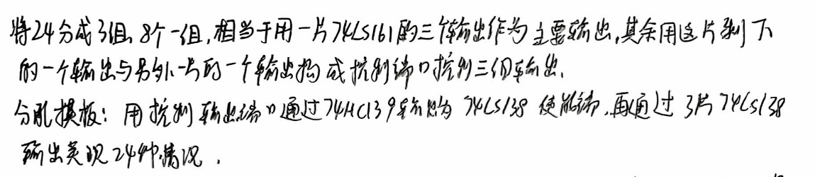 将24分成3组,8个一组,相当于用一片74LS161的三个输出作为主要输出,其余用这片剩下
的一个输出与另外一片的一个输出构成控制端口控制三组输出.
分配模板:用控制输出端口通过74HC139输出为74LS138使能端,再通过3片74LS138
输出实现24种情况.